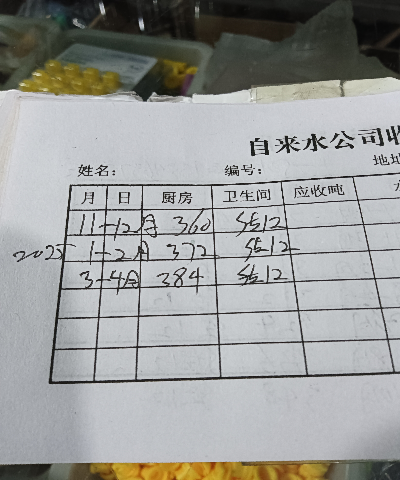 自来水公司收
姓名： 编号： 地
月 日 厨房 卫生间 应收吨
11-12月 360 12
2025 1-2月 372 12
3-4月 384 12